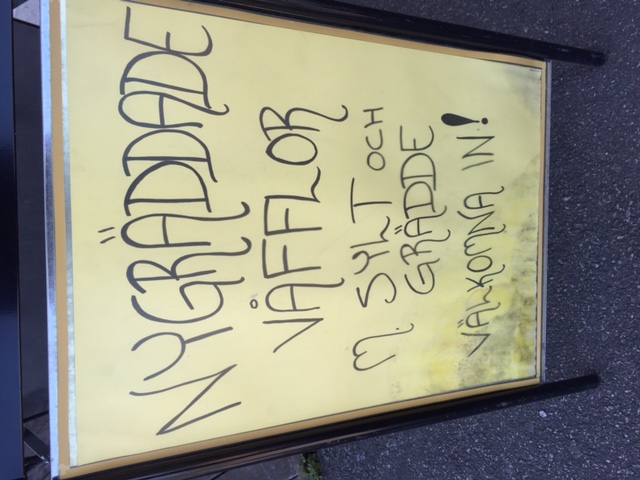 NYGRÄDDADE
VÅFFLOR
M. SYLT OCH
GRÄDDE
VÄLKOMNA IN!